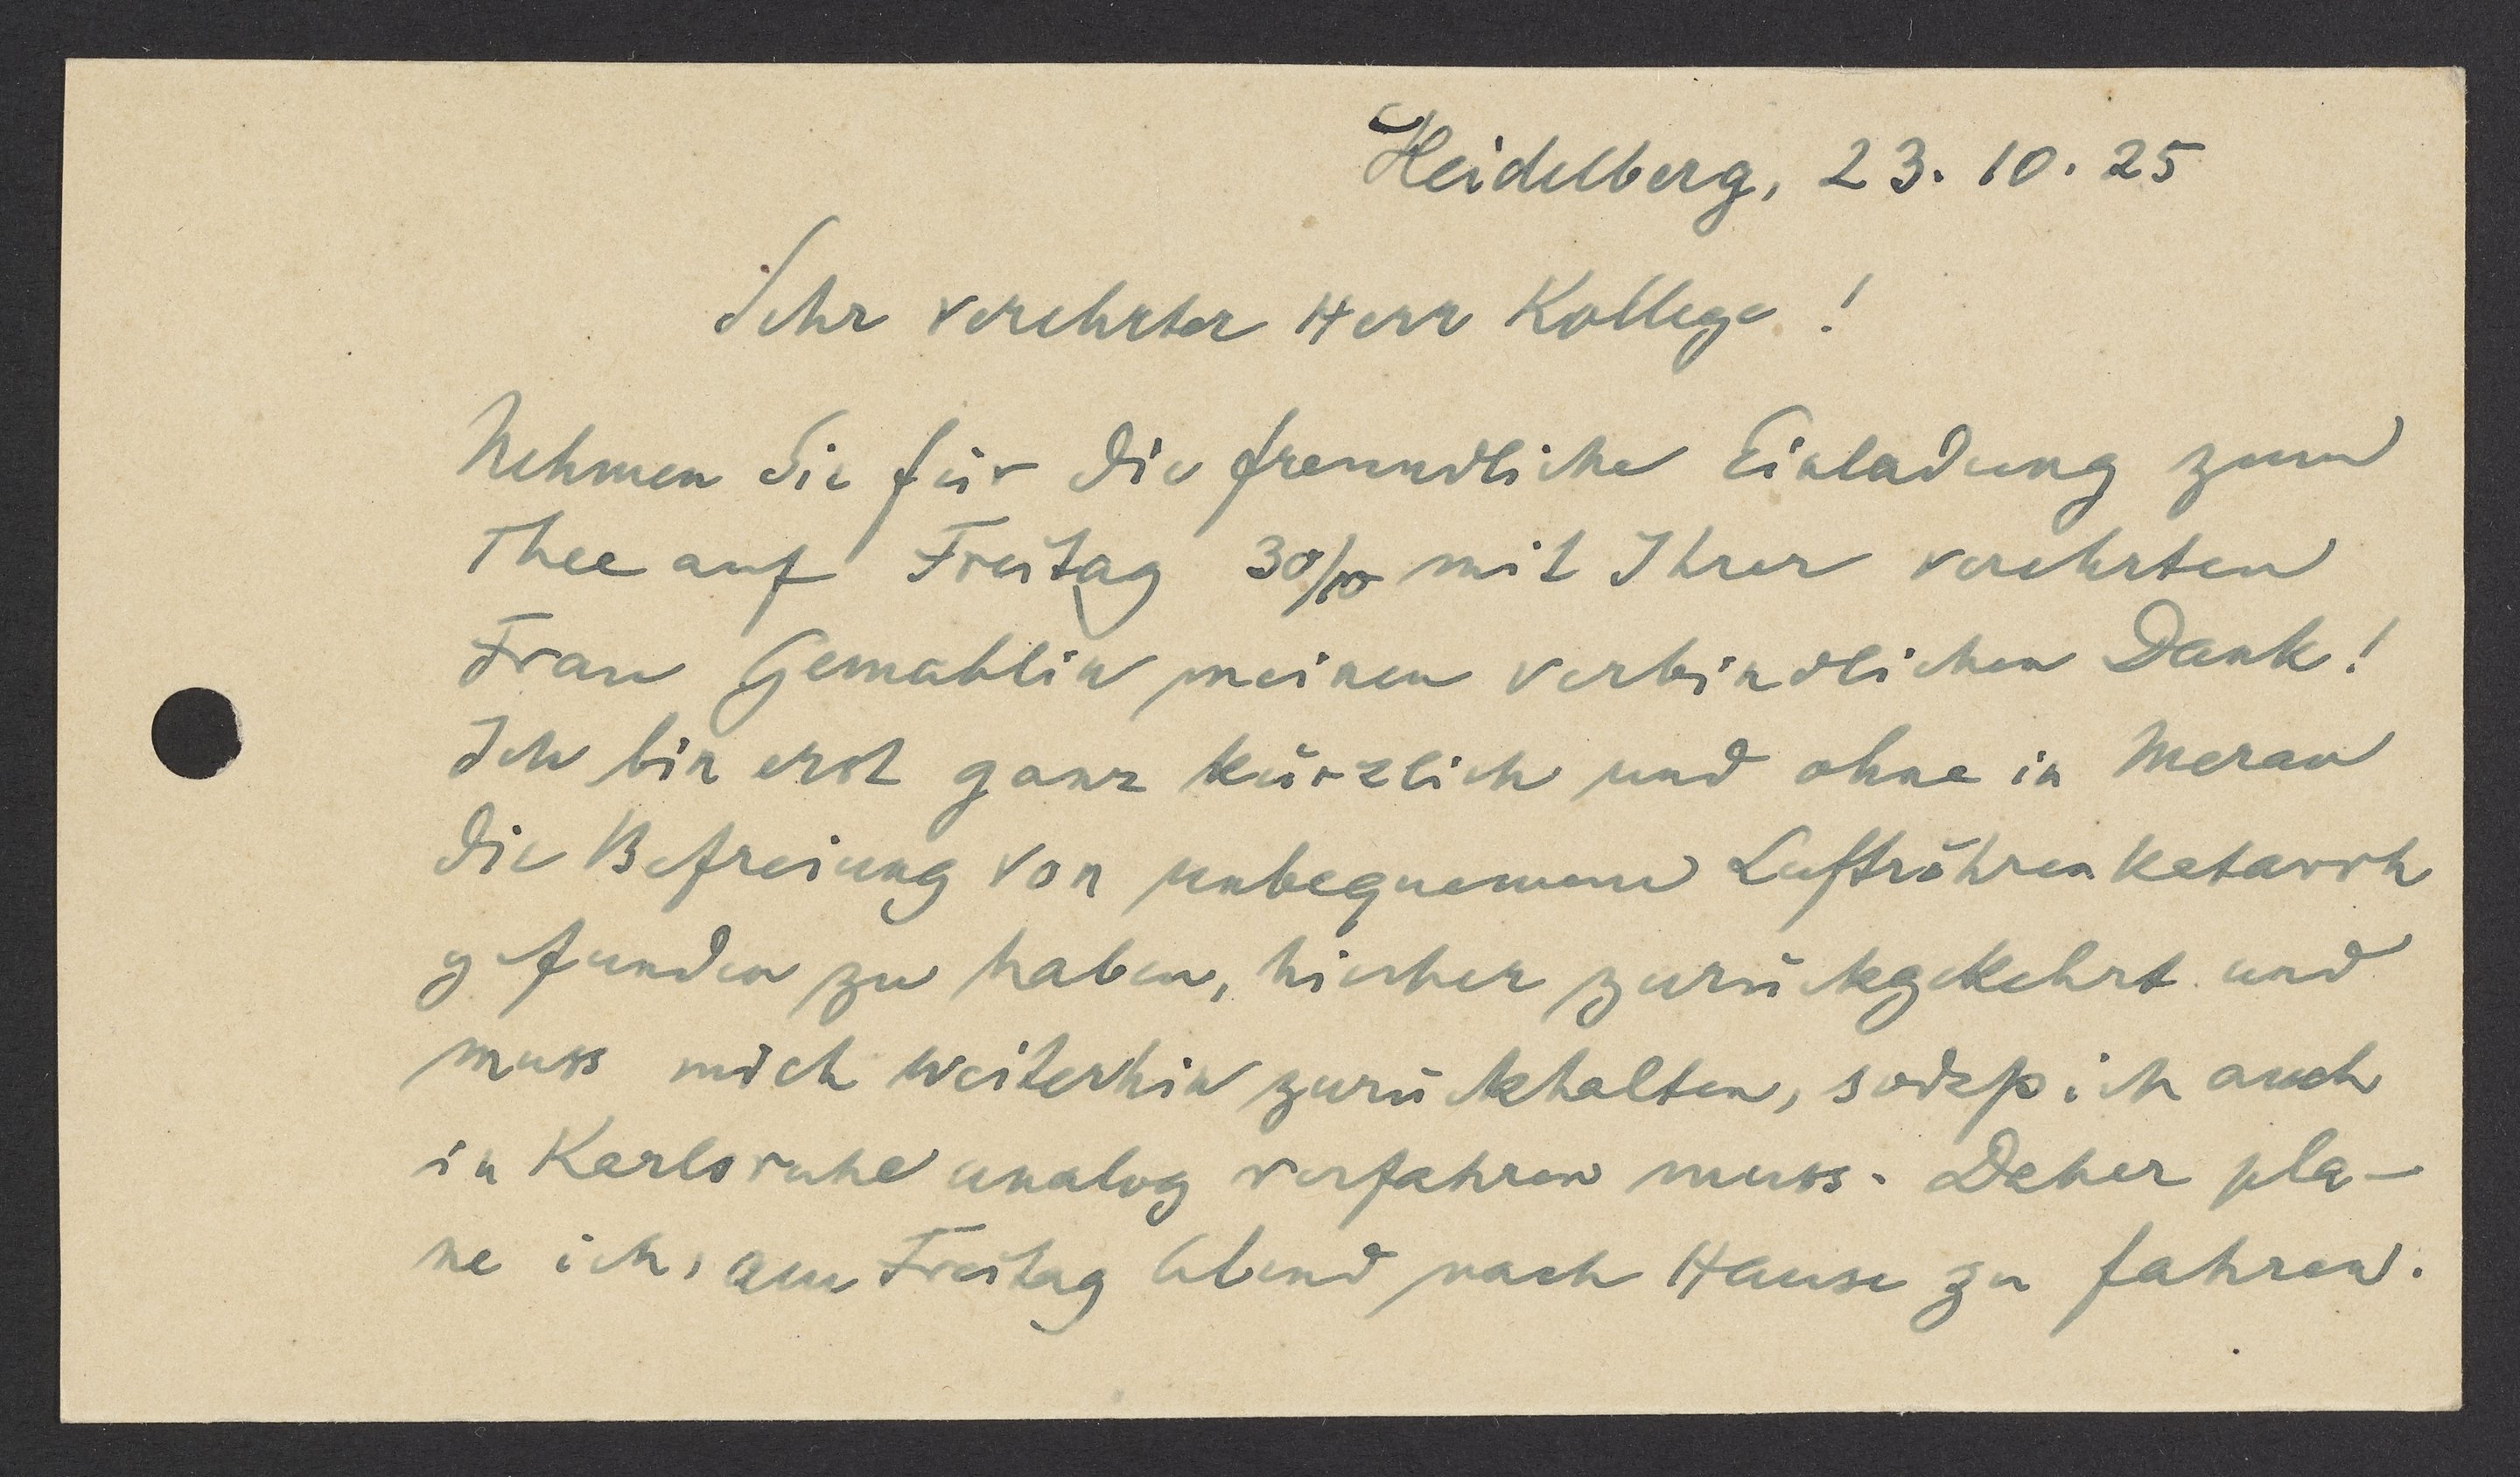 Heidelberg, 23. 10. 25
Sehr verehrter Herr Kollege!
Nehmen Sie für die freundliche Einladung zum
Thee auf Freitag 30/10 mit Ihrer verehrten
Frau Gemahlin meinen verbindlichen Dank!
Ich bin erst ganz kürzlich und ohne in Meran
die Befreiung von unbequemem Luftröhrenkatarrh
gefunden zu haben, hierher zurückgekehrt und
muss mich weiterhin zurückhalten, sodaß ich auch
in Karlsruhe analog verfahren muss. Daher pla-
ne ich, am Freitag Abend nach Hause zu fahren.